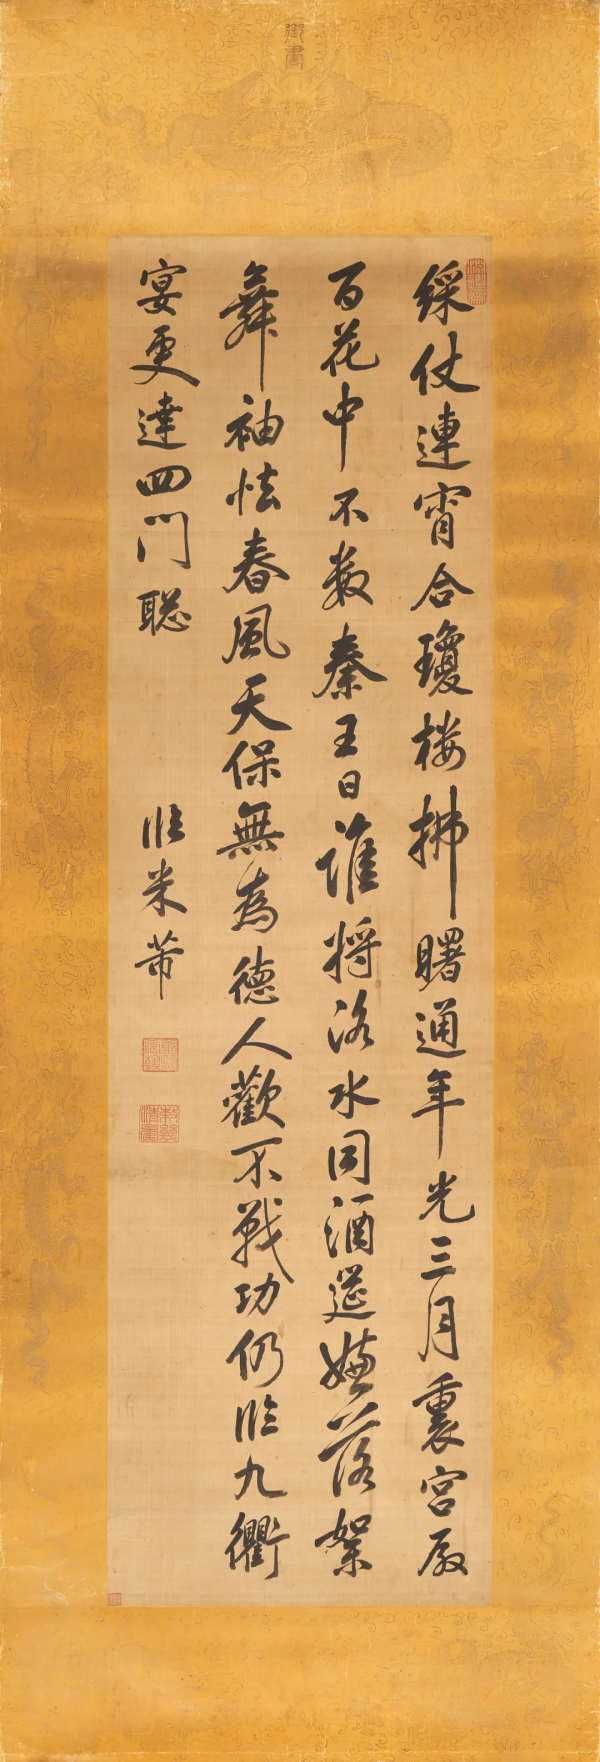 御書
淵鑒齋
綵仗連宵合瓊樓拂曙通年光三月裏宮殿
百花中不數秦王日誰將洛水同酒筵嫌落絮
舞袖怯春風天保無為德人歡不戰功仍臨九衢
宴更達四門聰
臨米芾
康熙宸翰
敕幾清晏